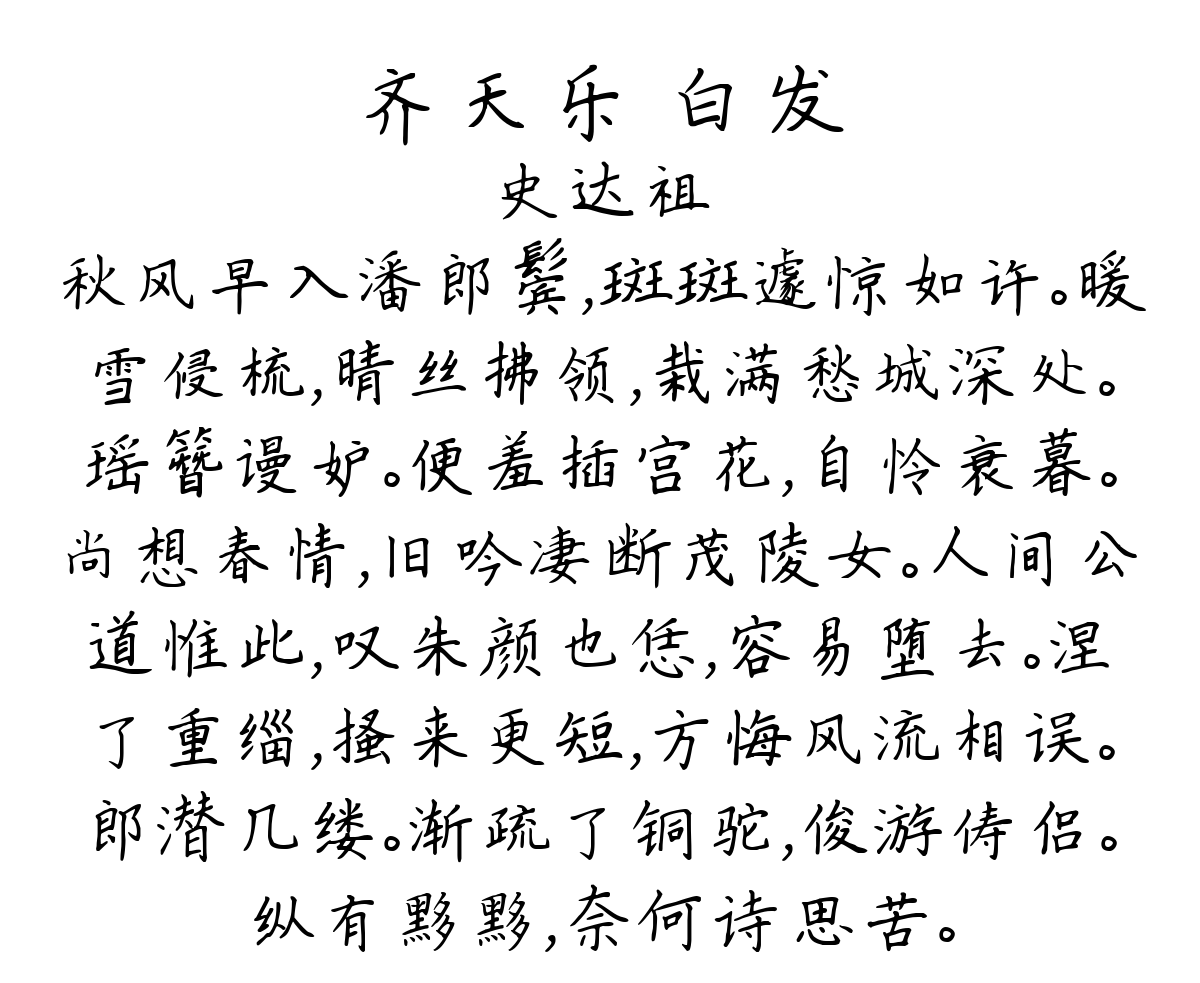 齐天乐 白发
史达祖
秋风早入潘郎鬓,斑斑遽惊如许。暖
雪侵梳,晴丝拂领,栽满愁城深处。
瑶簪谩妒。便羞插宫花,自怜衰暮。
尚想春情,旧吟凄断茂陵女。人间公
道惟此,叹朱颜也恁,容易堕去。涅
了重缁,搔来更短,方悔风流相误。
郎潜几缕。渐疏了铜驼,俊游俦侣。
纵有黟黟,奈何诗思苦。